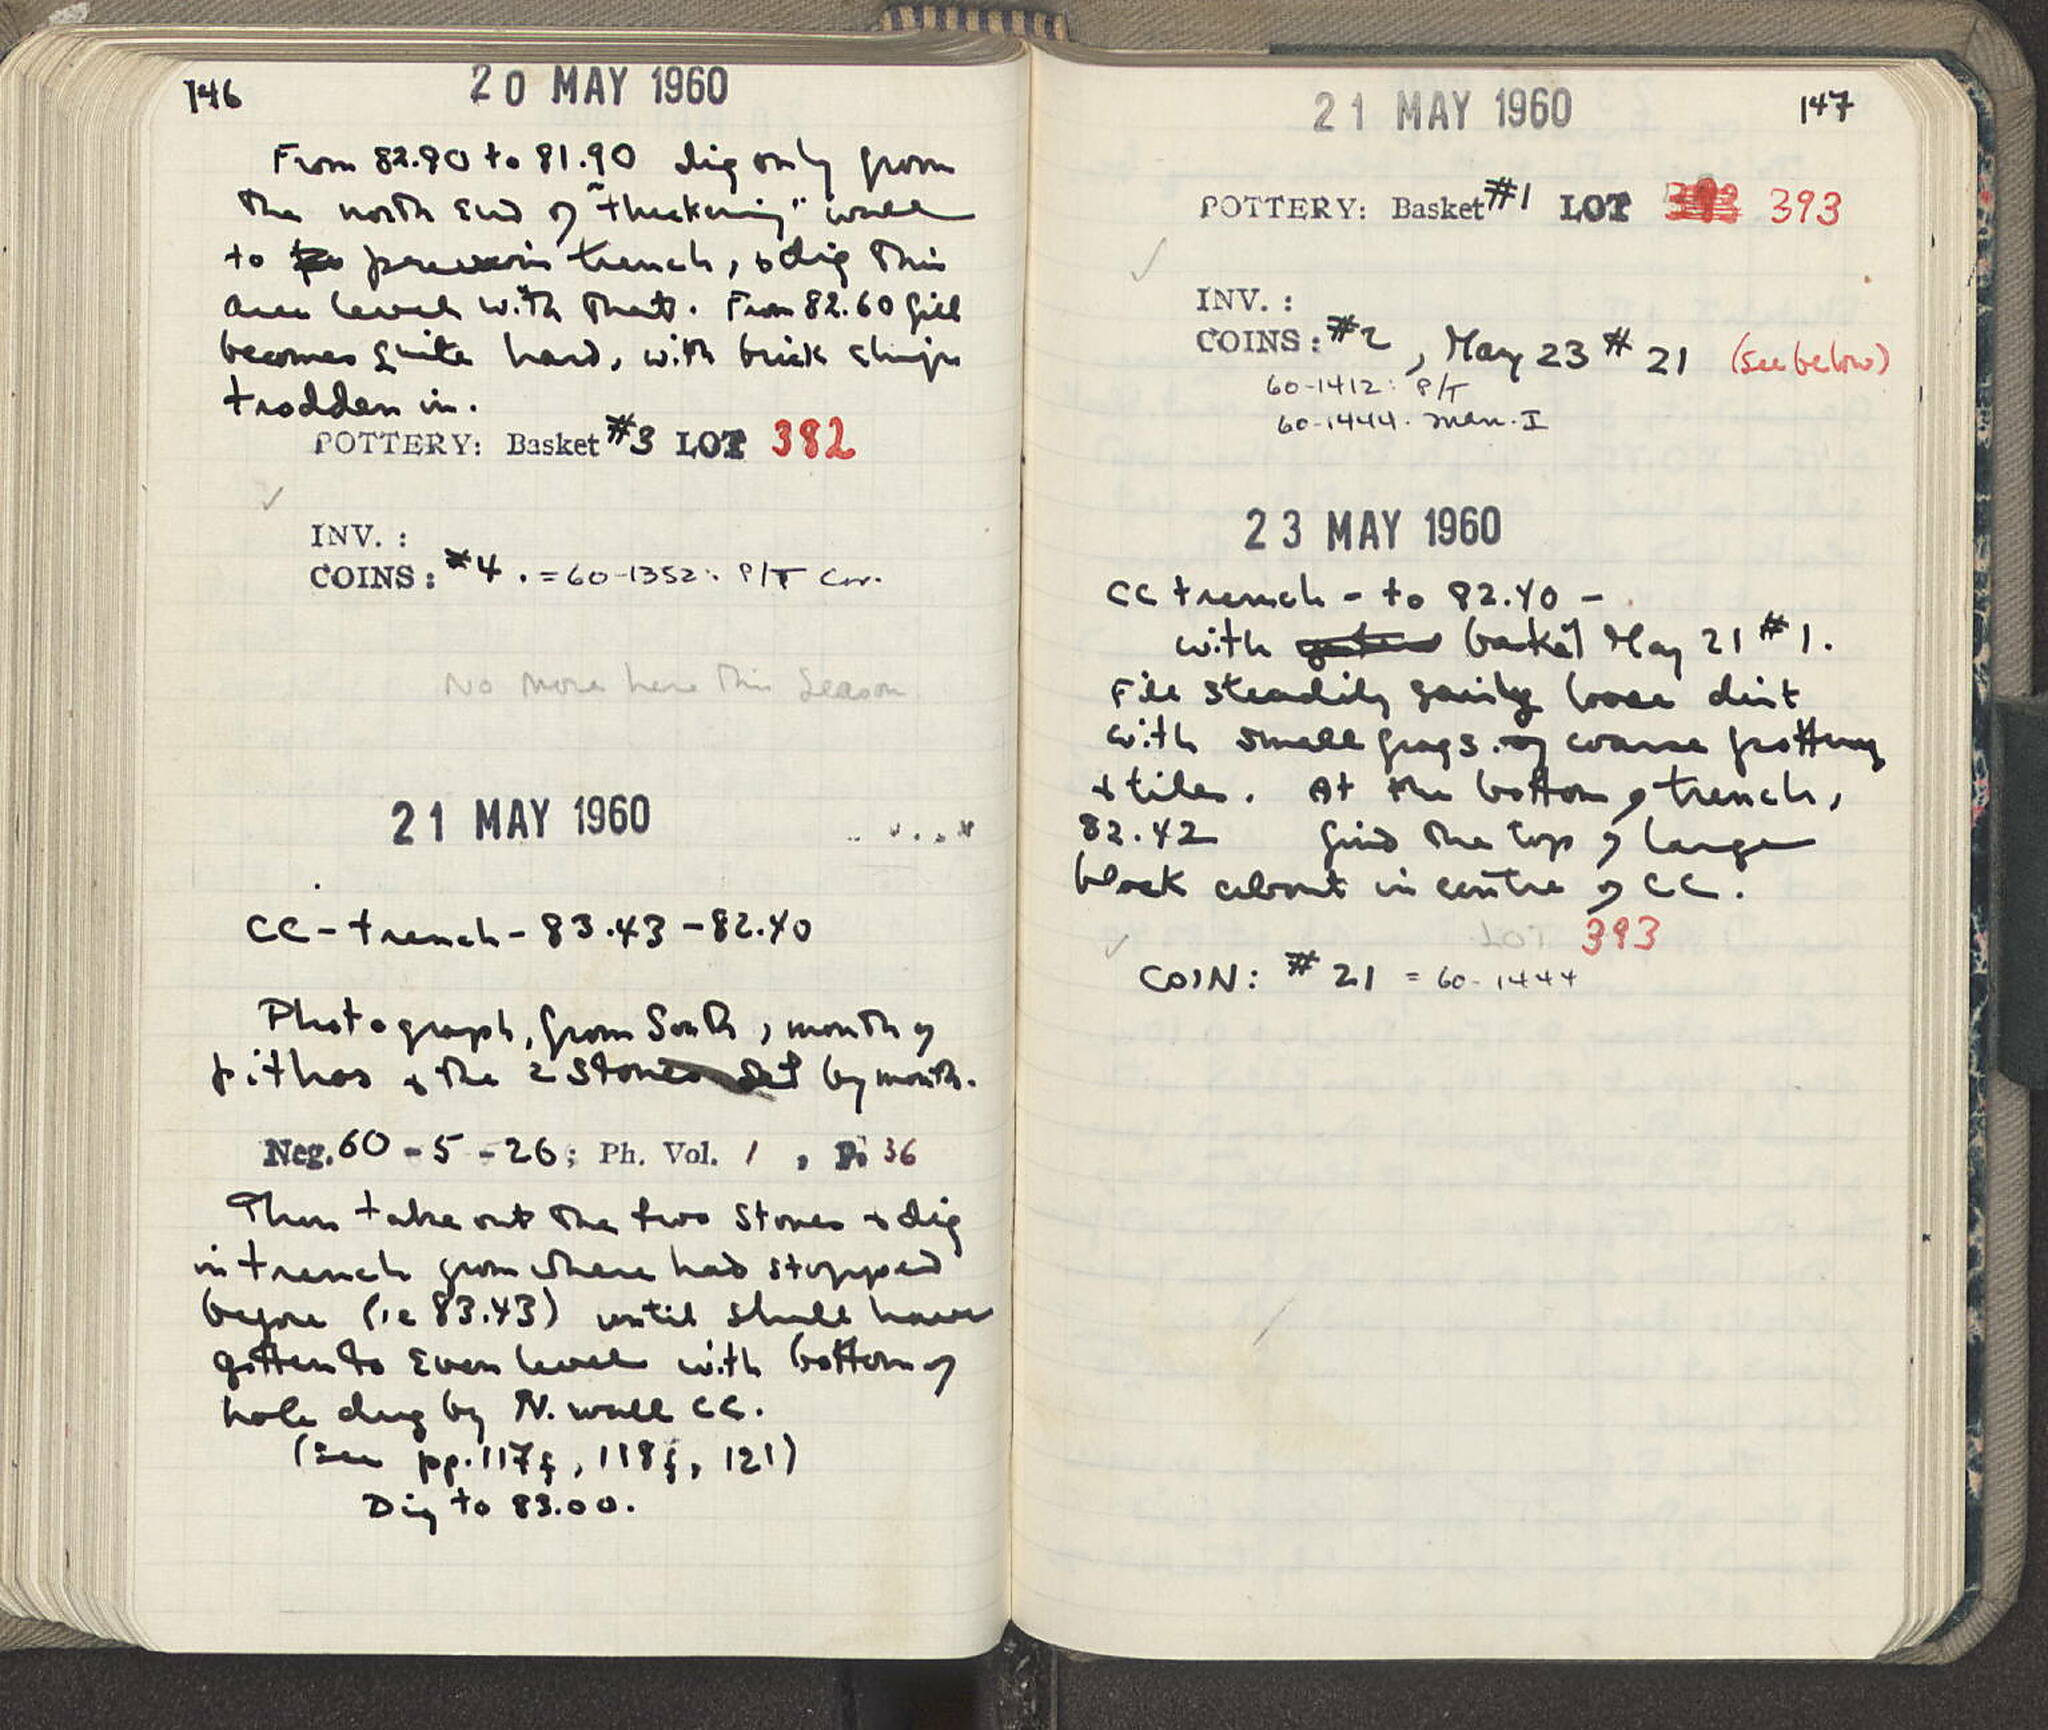 146
20 MAY 1960
From 82.90 to 81.90 dig only from
the north end of "thickening" wall
to previous trench, & dig this
area level with that. From 82.60 fill
becomes quite hard, with brick chips
trodden in.
POTTERY: Basket #3 LOT 382
INV. :
COINS: #4. = 60-1352: P/T Cor.
No more here this season
21 MAY 1960
CC - trench - 83.43 - 82.40
Photograph, from South, mouth of
pithos & the 2 stones set by mouth.
Neg. 60 - 5 - 26; Ph. Vol. 1 , P. 36
Then take out the two stones & dig
in trench from where had stopped
before (ie 83.43) until shall have
gotten to even level with bottom of
hole dug by N. wall CC.
(See pp. 117f, 118f, 121)
Dig to 83.00.
21 MAY 1960
147
POTTERY: Basket #1 LOT 393
INV. :
COINS: #2, May 23 # 21 (see below)
60-1412: P/T
60-1444. Man. I
23 MAY 1960
CC trench - to 82.40 -
with basket May 21 #1.
Fill steadily fairly loose dirt
with small frags. of coarse pottery
& tiles. At the bottom of trench,
82.42 find the top of large
block about in centre of CC.
LOT 393
COIN: # 21 = 60-1444